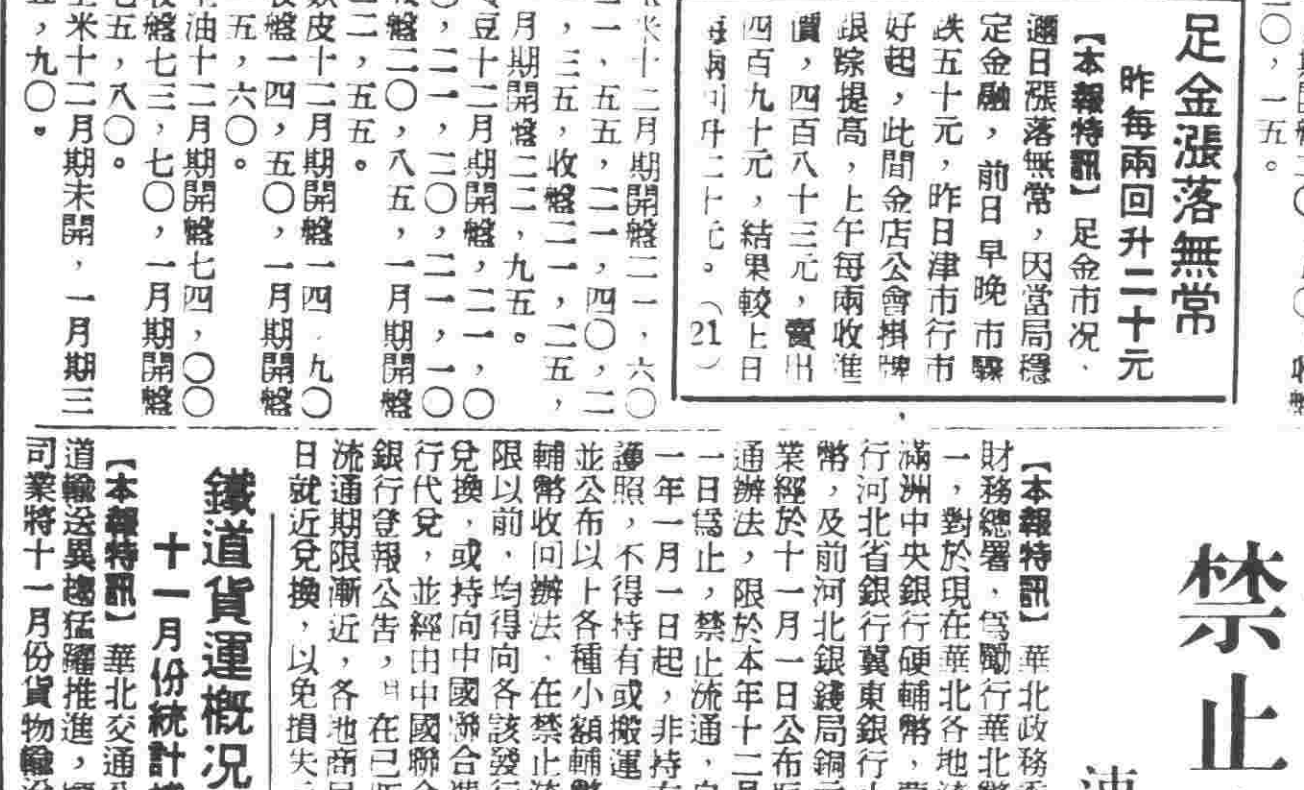 〇，一五。
足金漲落無常
昨每兩回升二十元
【本報特訊】足金市况、
邇日漲落無常，因當局穩
定金融，前日早晚市驟
跌五十元，昨日津市行市
好起，此間金店公會掛牌
跟踪提高，上午每兩收進
價，四百八十三元，賣出
四百九十元，結果較上日
每兩回升二十元。（21）
米十二月期開盤二一，六〇
一，五五，二一，四〇，二
，三五，收盤二一，二五，
月期開盤二二，九五。
豆十二月期開盤，二一，〇
〇，二一，二〇，二一，一〇
盤二〇，八五，一月期開盤
二二，五五。
皮十二月期開盤一四，九〇
盤一四，五〇，一月期開盤
五，六〇。
油十二月期開盤七四，〇〇
盤七三，七〇，一月期開盤
七五，八〇。
米十二月期未開，一月期三
，九〇。
禁止
【本報特訊】華北政務
財務總署，為勵行華北幣
一，對於現在華北各地
滿洲中央銀行硬輔幣，
行河北省銀行冀東銀行
幣，及前河北銀錢局銅元
業經於十一月一日公布
通辦法，限於本年十二月
一日爲止，禁止流通，自
一年一月一日起，非持有
護照，不得持有或搬運
並公布以上各種小額輔幣
輔幣收回辦法、在禁止流
限以前，均得向各該發行
兌換，或持向中國聯合準
行代兌，並經由中國聯合
銀行登報公告，在已
流通期限漸近，各地商民
日就近兌換，以免損失
鐵道貨運概况
十一月份統計
【本報特訊】華北交通公
道輸送異趨猛躍推進，
司業將十一月份貨物輸